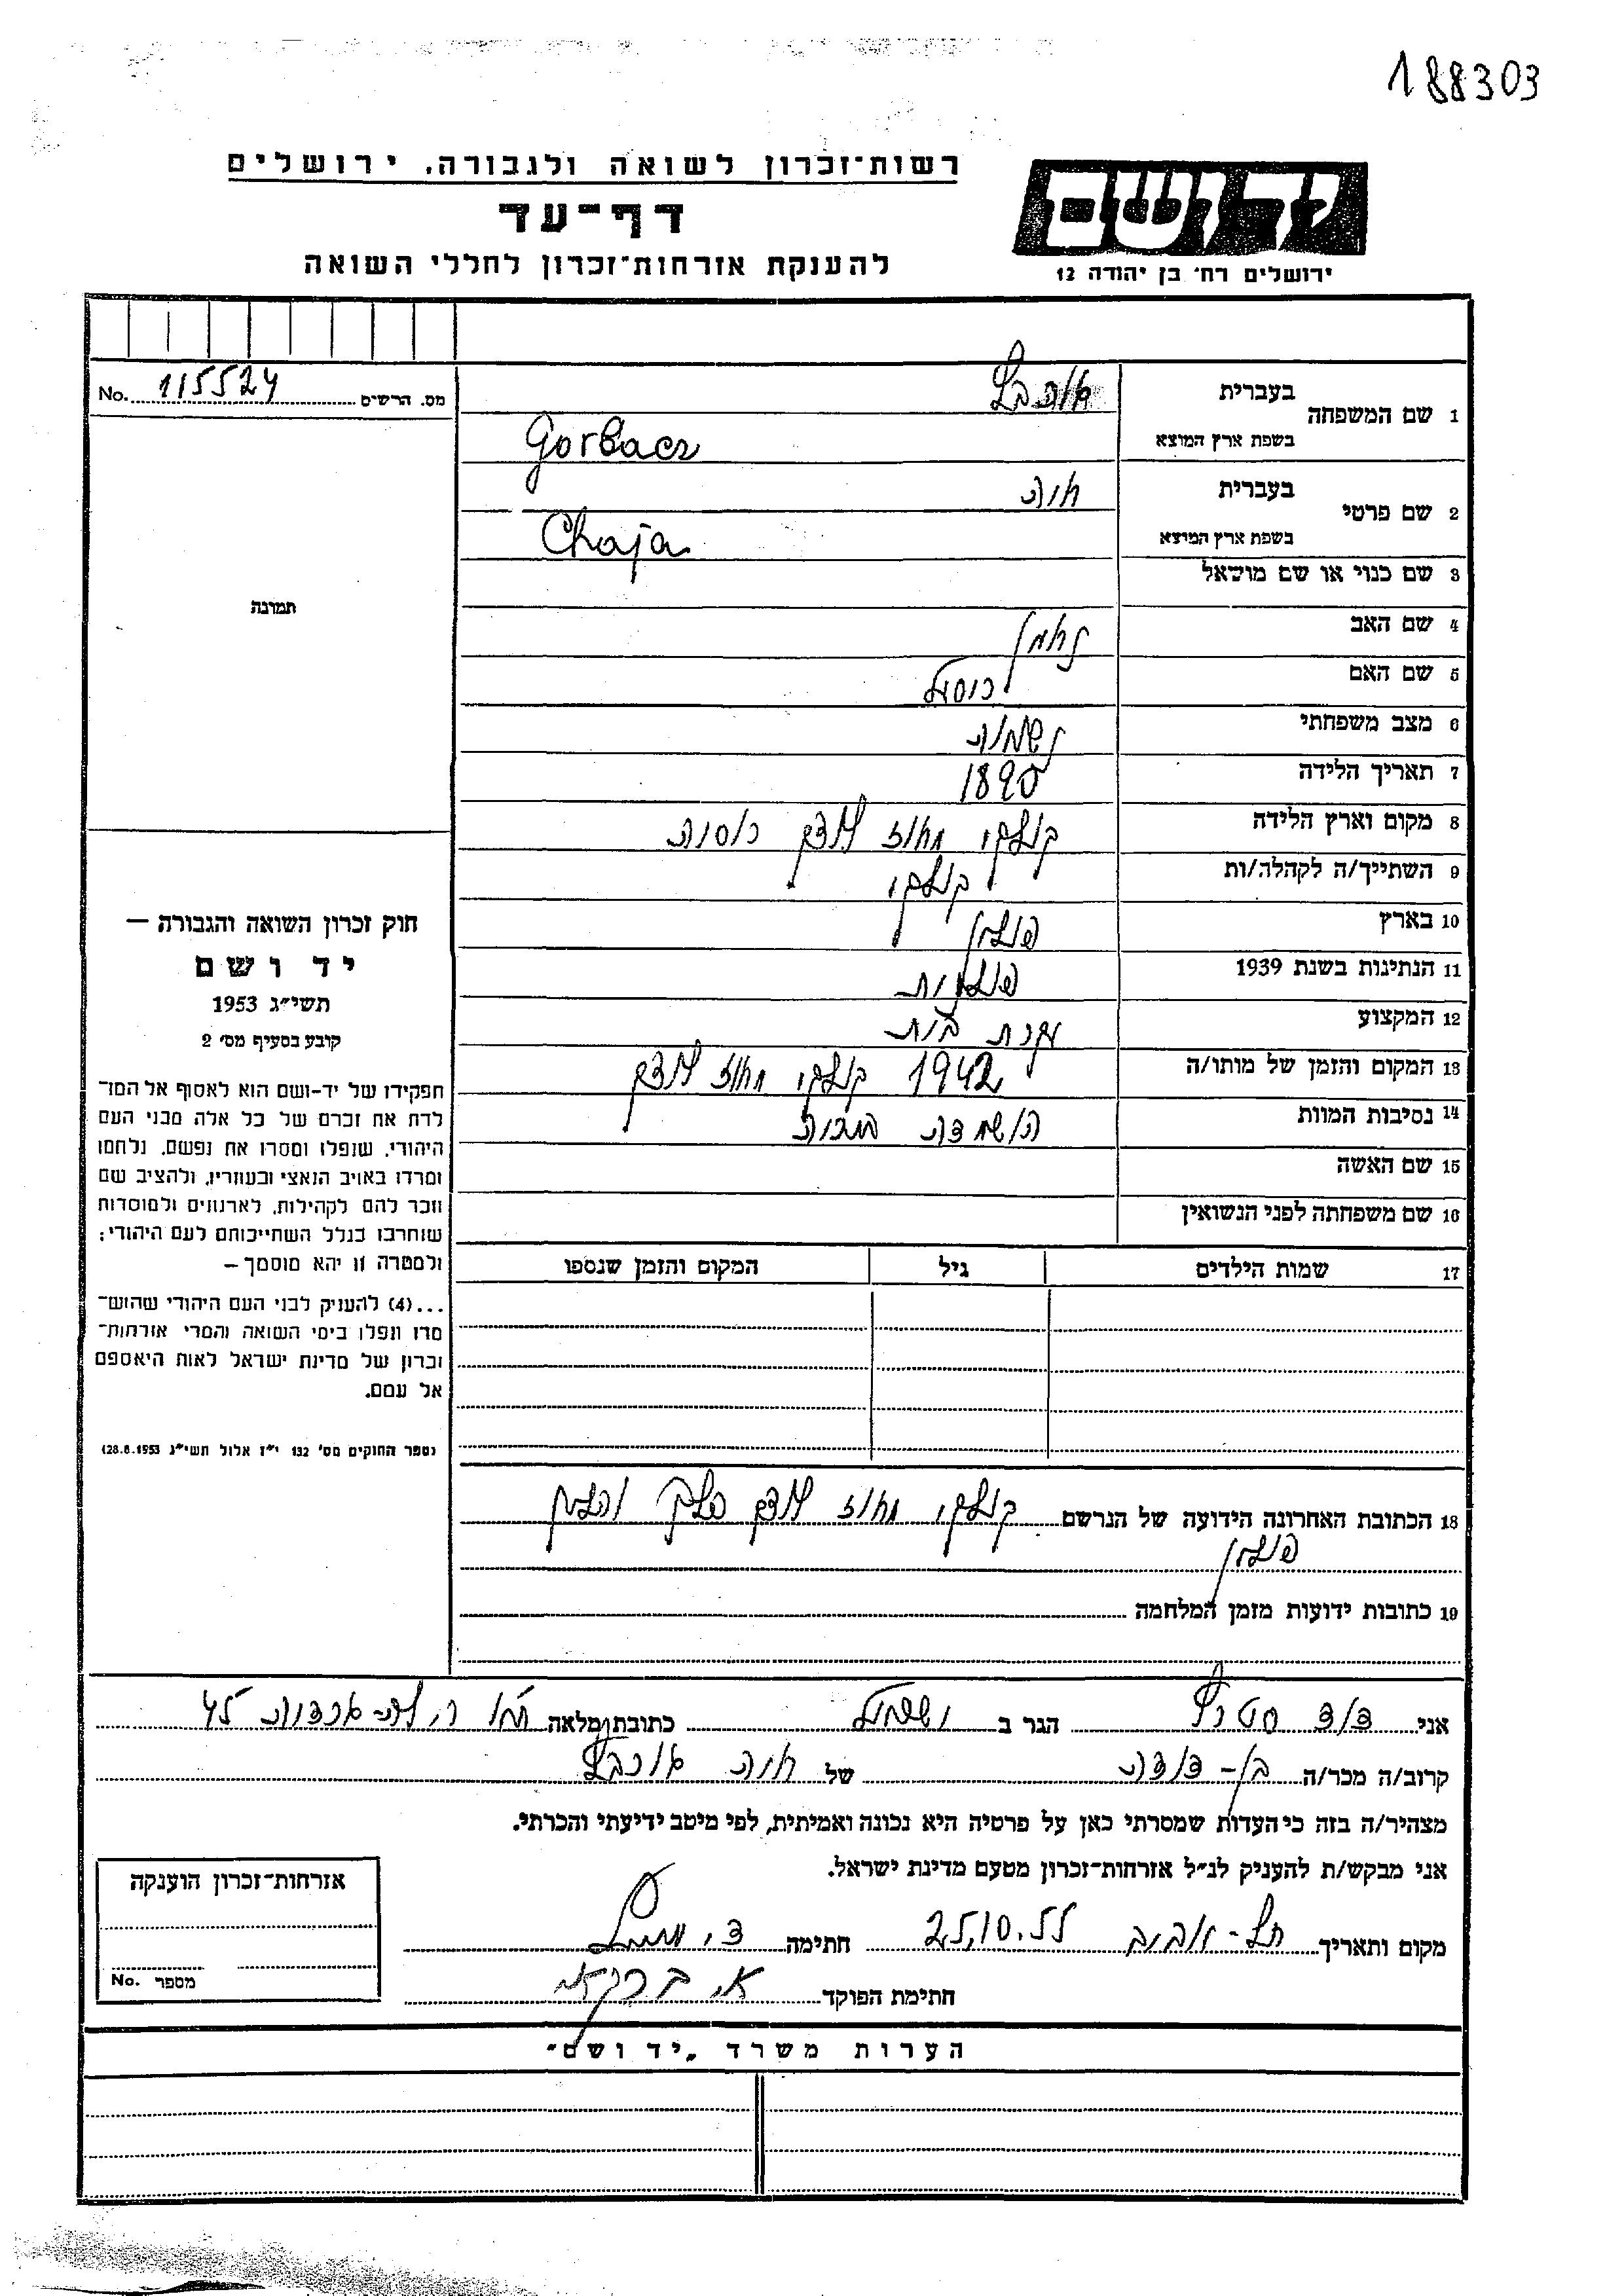 188303
רשות־זכרון לשואה ולגבורה, ירושלים
דף־עד
להענקת אזרחות־זכרון לחללי השואה
יד ושם
ירושלים רח׳ בן יהודה 12
מס. הרשים 115524 No.
תמונה
1 שם המשפחה
בעברית
בשפת ארץ המוצא Gorbacz
2 שם פרטי
בעברית חיה
בשפת ארץ המוצא Chaja
3 שם כנוי או שם מושאל
4 שם האב נחמן
5 שם האם
6 מצב משפחתי נשואה
7 תאריך הלידה 1890
8 מקום וארץ הלידה מחוז רוסיה
9 השתייך/ה לקהלה/ות
10 בארץ פולין
11 הנתינות בשנת 1939 פולנית
12 המקצוע עקרת בית
13 המקום והזמן של מותו/ה 1942 מחוז
14 נסיבות המוות השמדה
15 שם האשה
16 שם משפחתה לפני הנשואין
17 שמות הילדים גיל המקום והזמן שנספו
חוק זכרון השואה והגבורה —
יד ושם
תשי״ג 1953
קובע בסעיף מס׳ 2
תפקידו של יד-ושם הוא לאסוף אל המו־
לדת את זכרם של כל אלה מבני העם
היהודי, שנפלו ומסרו את נפשם, נלחמו
ומרדו באויב הנאצי ובעוזריו, ולהציב שם
וזכר להם לקהילות, לארגונים ולמוסדות
שנחרבו בגלל השתייכותם לעם היהודי;
ולמטרה זו יהא מוסמך —
...(4) להעניק לבני העם היהודי שהוש־
מדו ונפלו בימי השואה והמרי אזרחות־
זכרון של מדינת ישראל לאות היאספם
אל עמם.
(ספר החוקים מס׳ 132 י״ז אלול תשי״ג 28.8.1953)
18 הכתובת האחרונה הידועה של הנרשם מחוז פלך
פולין
19 כתובות ידועות מזמן המלחמה
אני דוד הגר ב ישראל כתובת מלאה 45
קרוב/ה מכר/ה בן-דודה של חיה
מצהיר/ה בזה כי העדות שמסרתי כאן על פרטיה היא נכונה ואמיתית, לפי מיטב ידיעתי והכרתי.
אני מבקש/ת להעניק לנ״ל אזרחות־זכרון מטעם מדינת ישראל.
מקום ותאריך תל-אביב 25.10.55 חתימה
חתימת הפוקד
אזרחות־זכרון הוענקה
מספר No.
הערות משרד „יד ושם״